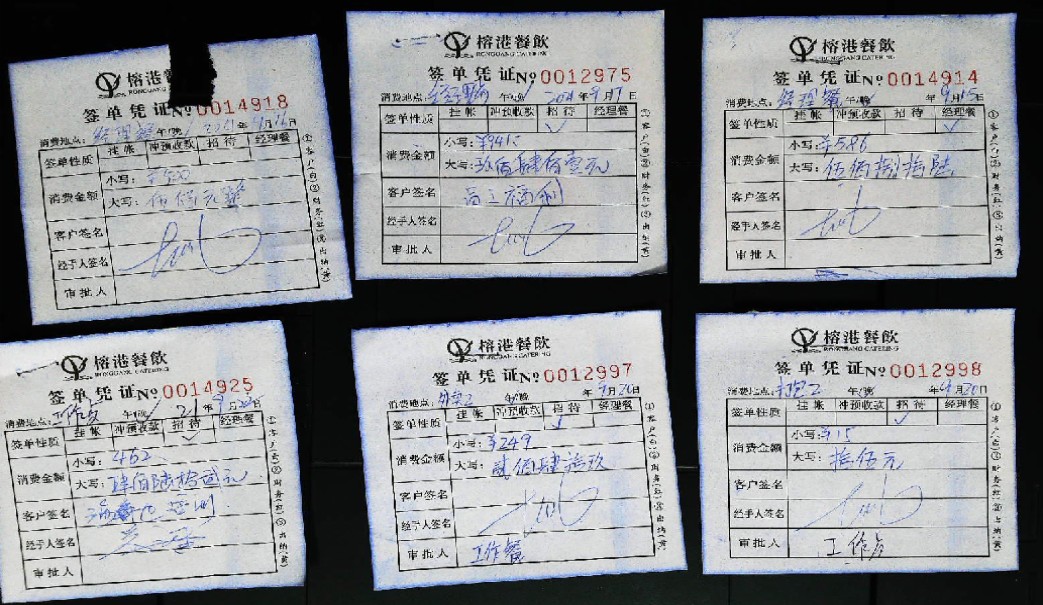 榕港餐飲
RONGGANG CATERING
签单凭证№0014918
消费地点：经理餐 午/晚 9月16日
签单性质 挂帐 冲预收款 招待 经理餐
消费金额 小写：￥500
大写：伍佰元整
客户签名
经手人签名
审批人
①客户(白)②财务(红)③出纳(黄)
榕港餐飲
RONGGUANG CATERING
签单凭证№0012975
消费地点： 午/晚 年9月17日
签单性质 挂帐 冲预收款 招待 ✓ 经理餐
消费金额 小写：￥941
大写：玖佰肆拾壹元
客户签名 员工福利
经手人签名
审批人
①客户(白)②财务(红)③出纳(黄)
榕港餐飲
RONGGUANG CATERING
签单凭证№0014914
消费地点：经理餐 午/晚 年9月15日
签单性质 挂帐 冲预收款 招待 经理餐 ✓
消费金额 小写：￥586
大写：伍佰捌拾陆
客户签名
经手人签名
审批人
①客户(白)②财务(红)③出纳(黄)
榕港餐飲
RONGGUANG CATERING
签单凭证№0014925
消费地点：工作餐 午/晚 21年9月20日
签单性质 挂帐 冲预收款 招待 ✓ 经理餐
消费金额 小写：462
大写：肆佰陆拾贰元
客户签名 培训
经手人签名
审批人
①客户(白)②财务(红)③出纳(黄)
榕港餐飲
RONGGUANG CATERING
签单凭证№0012997
消费地点： 午/晚 9月20日
签单性质 挂帐 冲预收款 招待 ✓ 经理餐
消费金额 小写：￥249
大写：贰佰肆拾玖
客户签名
经手人签名
审批人 工作餐
①客户(白)②财务(红)③出纳(黄)
榕港餐飲
RONGGUANG CATERING
签单凭证№0012998
消费地点： 午/晚 年9月20日
签单性质 挂帐 冲预收款 招待 ✓ 经理餐
消费金额 小写：￥15
大写：拾伍元
客户签名
经手人签名
审批人 工作餐
①客户(白)②财务(红)③出纳(黄)